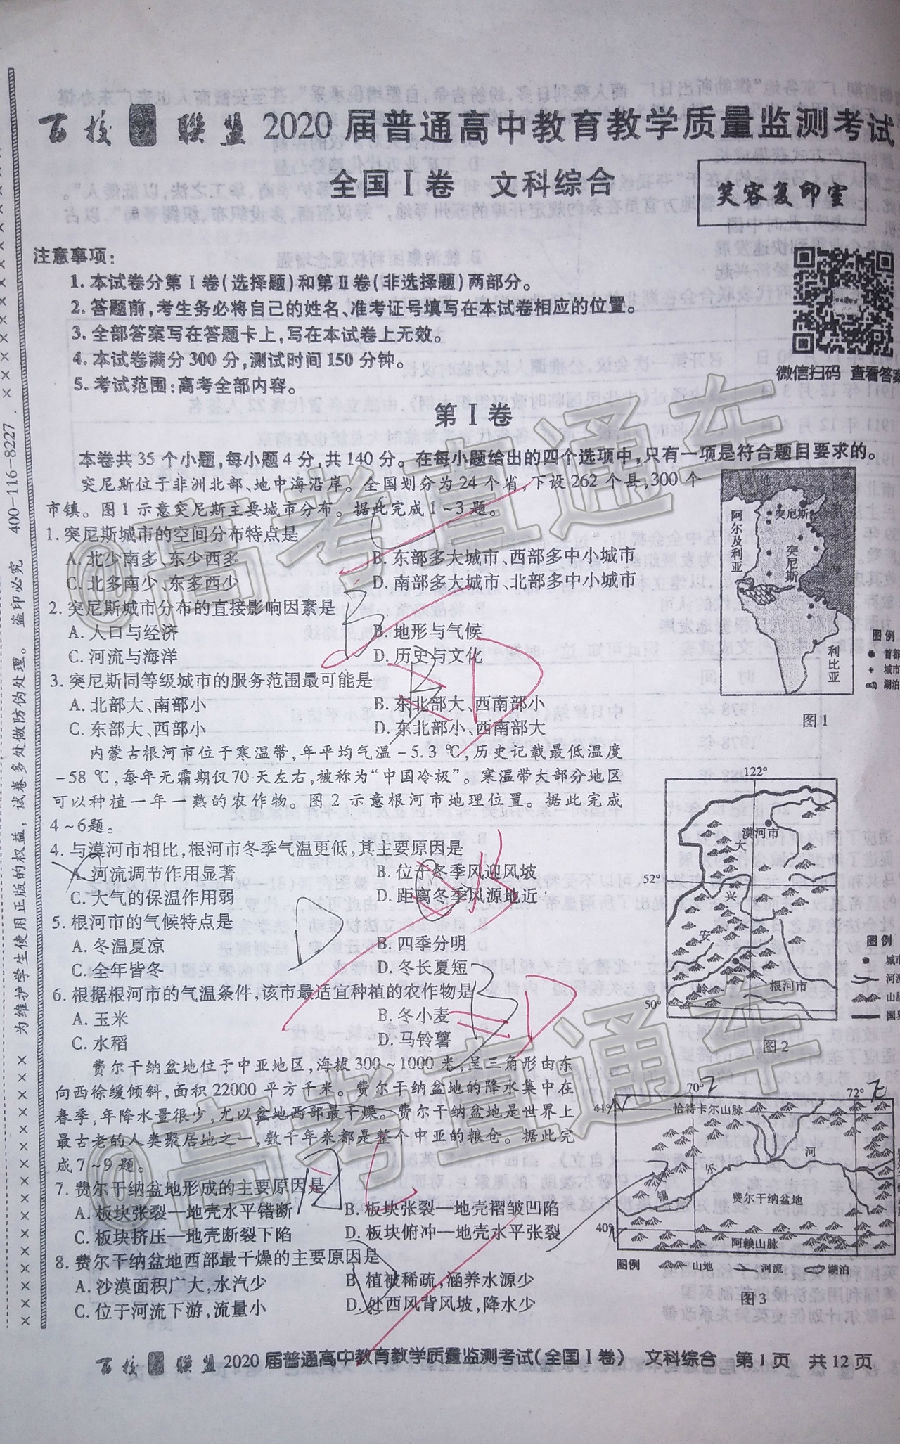 百校联盟 2020 届普通高中教育教学质量监测考试
全国 Ⅰ 卷 文科综合
笑容复印室
注意事项：
1. 本试卷分第 Ⅰ 卷(选择题)和第 Ⅱ 卷(非选择题)两部分。
2. 答题前,考生务必将自己的姓名、准考证号填写在本试卷相应的位置。
3. 全部答案写在答题卡上,写在本试卷上无效。
4. 本试卷满分 300 分,测试时间 150 分钟。
5. 考试范围:高考全部内容。
微信扫码 查看答案
第 Ⅰ 卷
本卷共 35 个小题,每小题 4 分,共 140 分。在每小题给出的四个选项中,只有一项是符合题目要求的。
突尼斯位于非洲北部、地中海沿岸。全国划分为 24 个省,下设 262 个县,300 个
市镇。图 1 示意突尼斯主要城市分布。据此完成 1~3 题。
1. 突尼斯城市的空间分布特点是
A. 北少南多、东少西多
B. 东部多大城市、西部多中小城市
C. 北多南少、东多西少
D. 南部多大城市、北部多中小城市
2. 突尼斯城市分布的直接影响因素是
A. 人口与经济
B. 地形与气候
C. 河流与海洋
D. 历史与文化
3. 突尼斯同等级城市的服务范围最可能是
A. 北部大、南部小
B. 东北部大、西南部小
C. 东部大、西部小
D. 东北部小、西南部大
阿尔及利亚
突尼斯
突尼斯
利比亚
图例
首都
城市
湖泊
图 1
内蒙古根河市位于寒温带,年平均气温-5.3 ℃,历史记载最低温度
-58 ℃,每年无霜期仅 70 天左右,被称为“中国冷极”。寒温带大部分地区
可以种植一年一熟的农作物。图 2 示意根河市地理位置。据此完成
4~6题。
4. 与漠河市相比,根河市冬季气温更低,其主要原因是
A. 河流调节作用显著
B. 位于冬季风迎风坡
C. 大气的保温作用弱
D. 距离冬季风源地近
5. 根河市的气候特点是
A. 冬温夏凉
B. 四季分明
C. 全年皆冬
D. 冬长夏短
6. 根据根河市的气温条件,该市最适宜种植的农作物是
A. 玉米
B. 冬小麦
C. 水稻
D. 马铃薯
122°
漠河市
大
52°
兴
安
岭
根河市
50°
图例
城市
河流
山脉
国界
图 2
费尔干纳盆地位于中亚地区,海拔 300~1000 米,呈三角形由东
向西徐缓倾斜,面积 22000 平方千米。费尔干纳盆地的降水集中在
春季,年降水量很少,尤以盆地西部最干燥。费尔干纳盆地是世界上
最古老的人类聚居地之一,数千年来都是整个中亚的粮仓。据此完
成 7~9 题。
7. 费尔干纳盆地形成的主要原因是
A. 板块张裂—地壳水平错断
B. 板块张裂—地壳褶皱凹陷
C. 板块挤压—地壳断裂下陷
D. 板块俯冲—地壳水平张裂
8. 费尔干纳盆地西部最干燥的主要原因是
A. 沙漠面积广大,水汽少
B. 植被稀疏,涵养水源少
C. 位于河流下游,流量小
D. 处西风背风坡,降水少
70°
72°
41°
恰特卡尔山脉
锡
尔
河
费尔干纳盆地
40°
阿赖山脉
图例
山地
河流
湖泊
图 3
百校联盟 2020 届普通高中教育教学质量监测考试(全国 Ⅰ 卷) 文科综合 第 1 页 共 12 页
为维护学生使用正版的权益，试卷多处做防伪处理。 盗印必究 400-116-8227
@高考直通车
@高考直通车